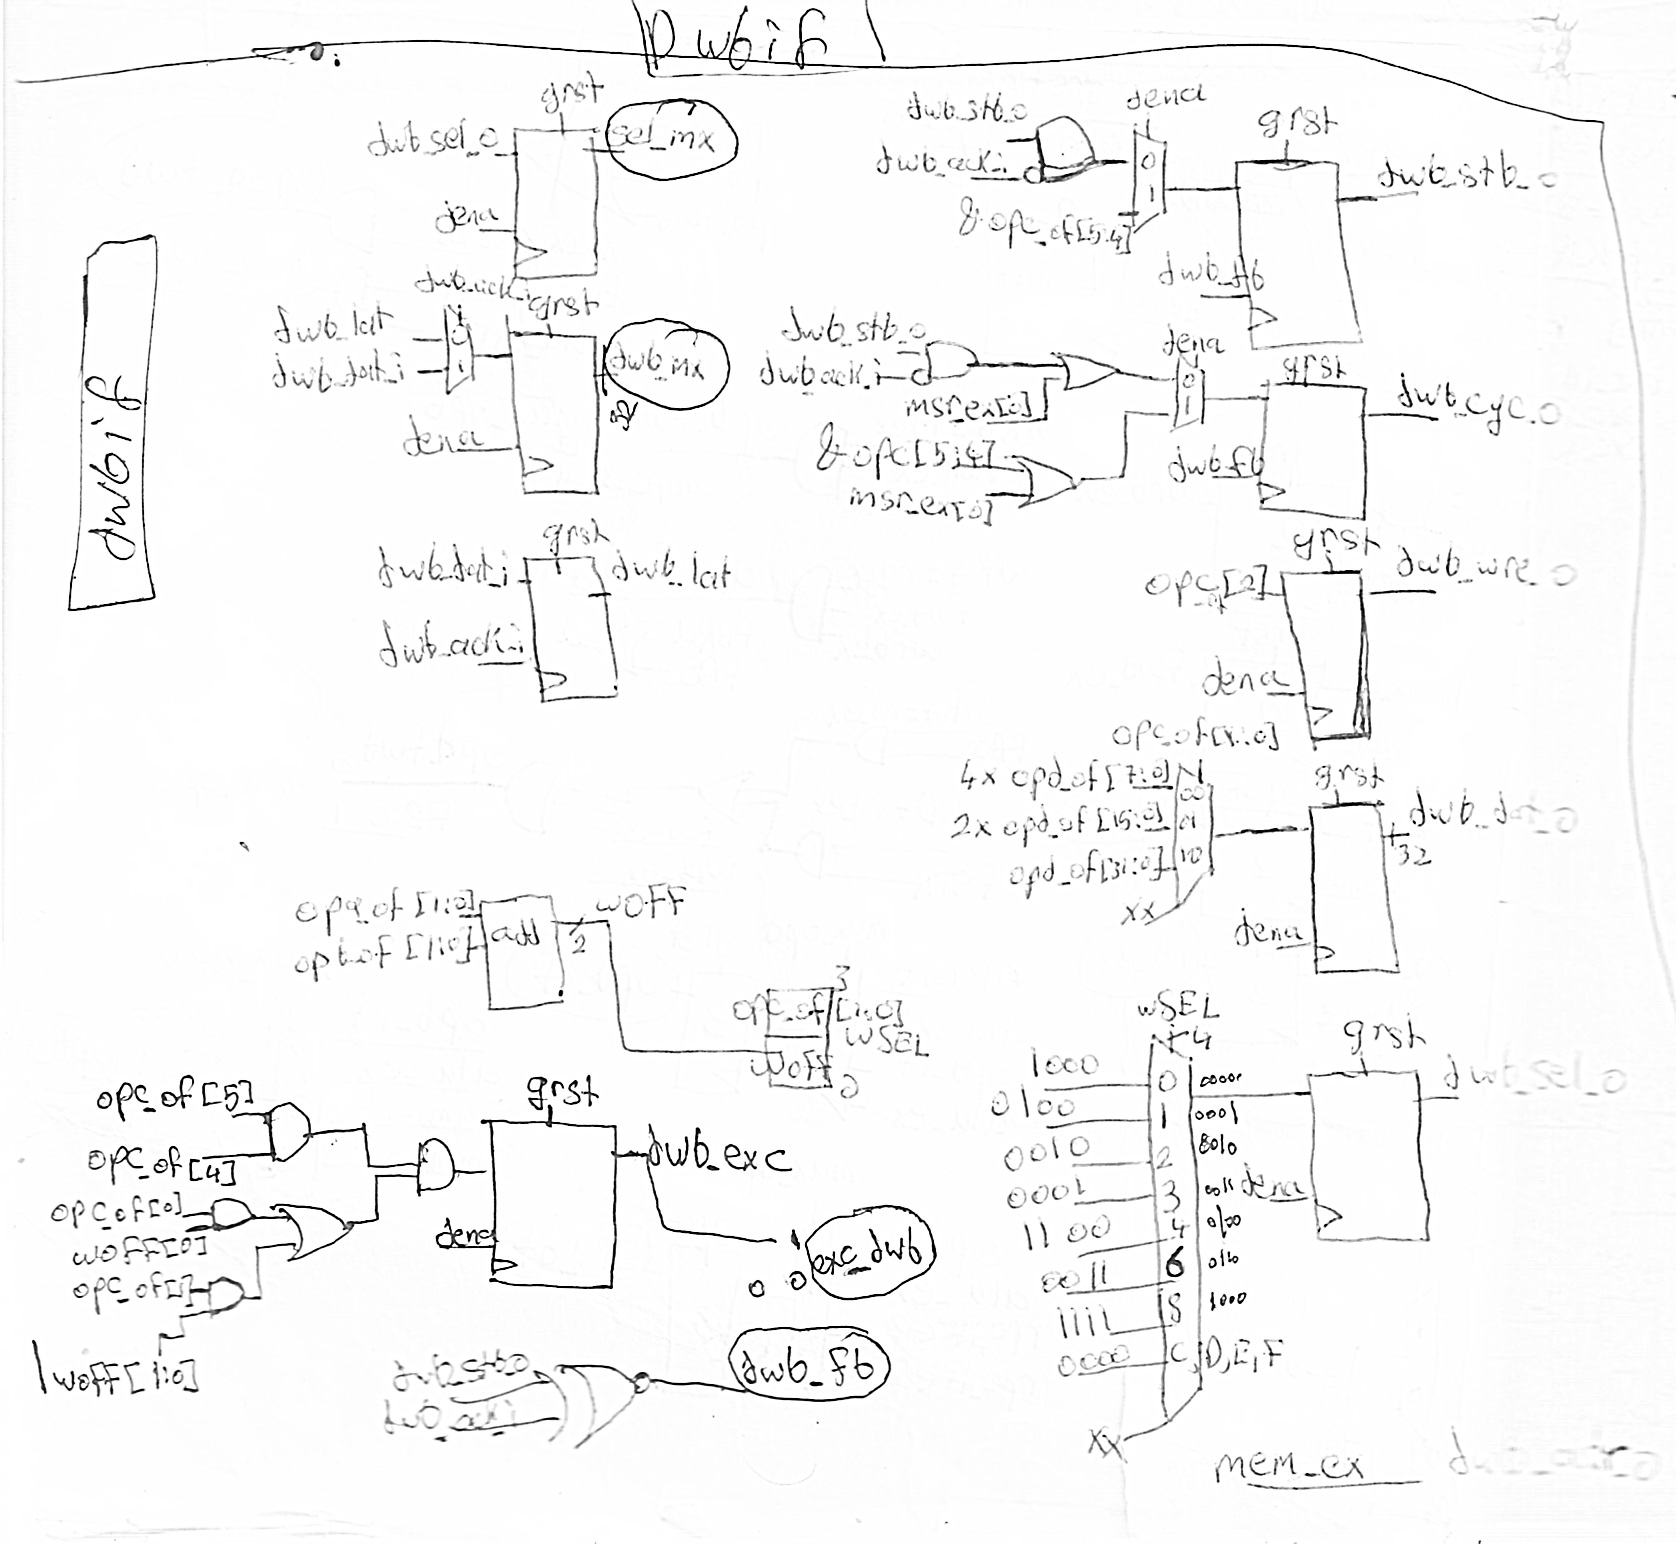 Dwbif
dwbif
grst
dwb_sel_o
sel_mx
dena
dwb_ack_i
grst
dwb_lat
0
dwb_dat_i
1
dwb_mx
32
dena
grst
dwb_dat_i
dwb_lat
dwb_ack_i
dwb_stb_o
dena
dwb_ack_i
0
1
& opc_of[5:4]
grst
dwb_stb_o
dwb_fb
dwb_stb_o
dena
dwb_ack_i
0
1
msr_ex[0]
& opc[5:4]
msr_ex[0]
grst
dwb_cyc_o
dwb_fb
grst
opc_of[2]
dwb_wre_o
dena
opc_of[1:0]
4x opd_of[7:0]
00
2x opd_of[15:0]
01
opd_of[31:0]
10
xx
grst
32
dena
opa_of[1:0]
opb_of[1:0]
add
2
wOFF
3
opc_of[1:0]
wSEL
wOFF
0
wSEL
4
grst
1000
0
0000
0100
1
0001
0010
2
0001
3
0011
dena
1100
4
0100
0011
6
1111
8
1000
0000
C,D,E,F
xx
dwb_sel_o
opc_of[5]
opc_of[4]
opc_of[0]
wOFF[0]
opc_of[1]
|wOFF[1:0]
grst
dwb_exc
dena
1
0
0
exc_dwb
dwb_stb_o
dwb_ack_i
dwb_fb
mem_ex